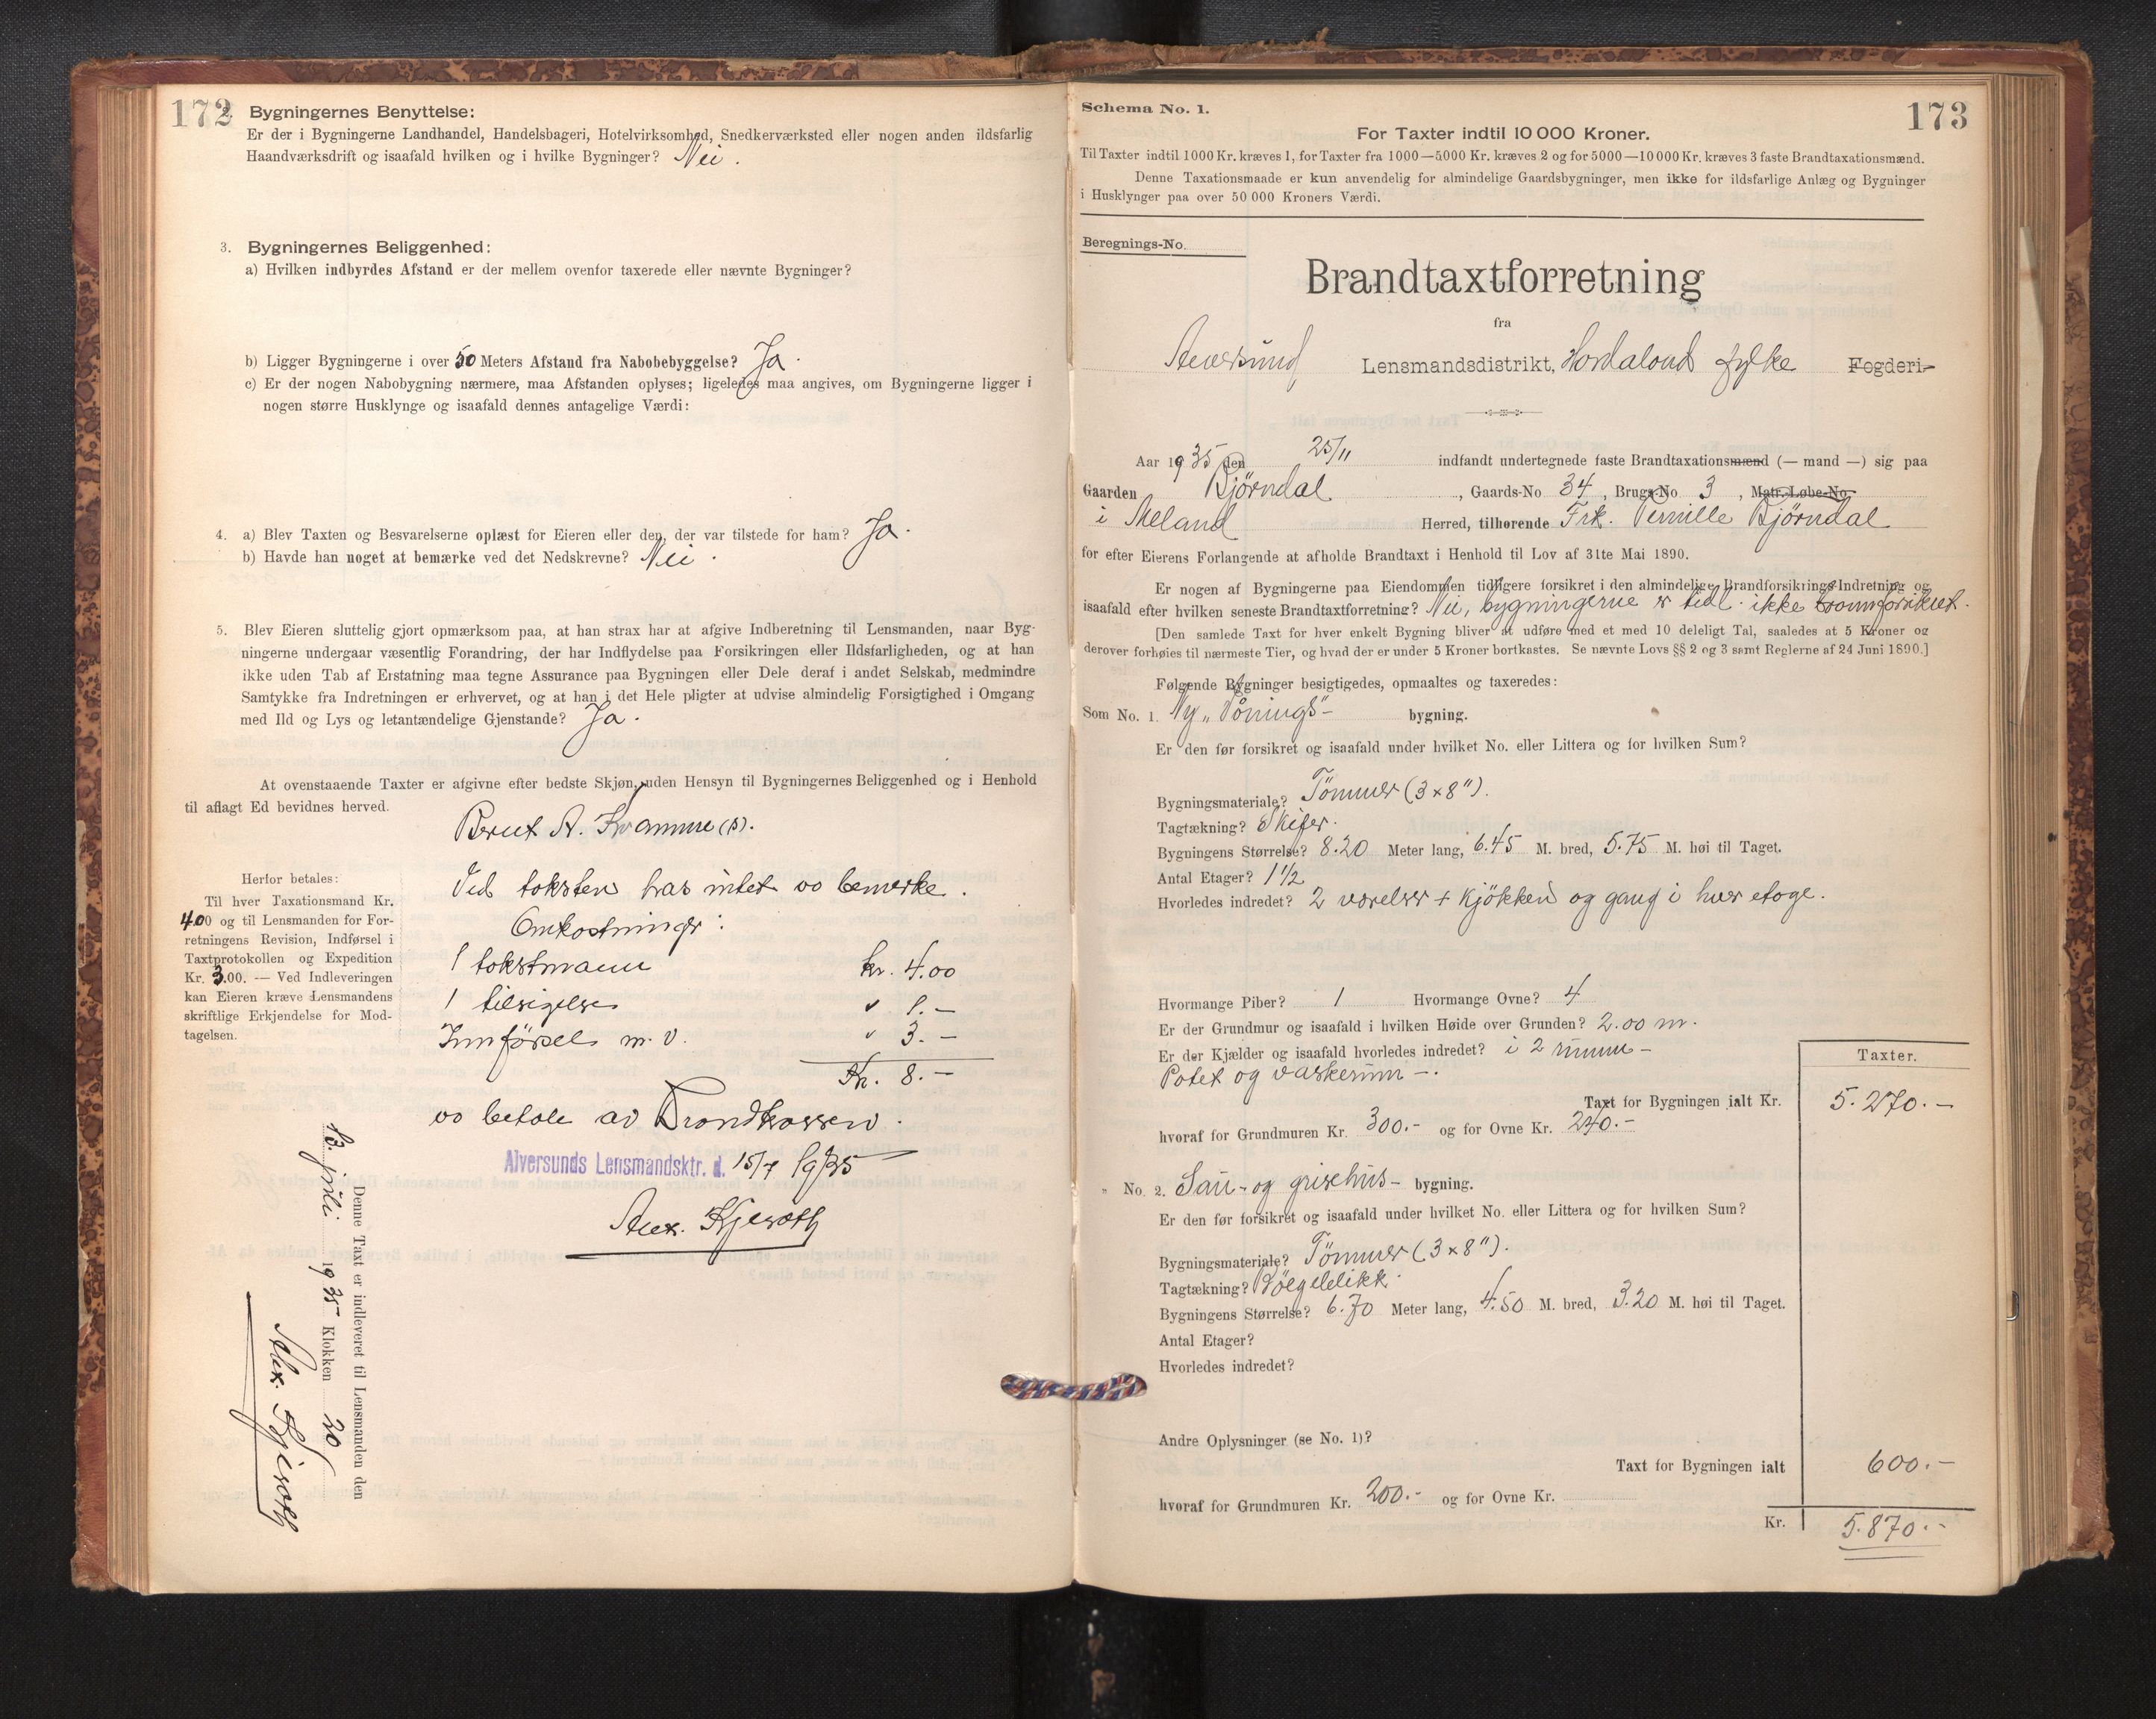 172
2. Bygningernes Benyttelse:
Er der i Bygningerne Landhandel, Handelsbageri, Hotelvirksomhed, Snedkerværksted eller nogen anden ildsfarlig
Haandværksdrift og isaafald hvilken og i hvilke Bygninger? Nei.
3. Bygningernes Beliggenhed:
a) Hvilken indbyrdes Afstand er der mellem ovenfor taxerede eller nævnte Bygninger?
b) Ligger Bygningerne i over 50 Meters Afstand fra Nabobebyggelse? Ja.
c) Er der nogen Nabobygning nærmere, maa Afstanden oplyses; ligeledes maa angives, om Bygningerne ligger i
nogen større Husklynge og isaafald dennes antagelige Værdi:
4. a) Blev Taxten og Besvarelserne oplæst for Eieren eller den, der var tilstede for ham? Ja.
b) Havde han noget at bemærke ved det Nedskrevne? Nei.
5. Blev Eieren sluttelig gjort opmærksom paa, at han strax har at afgive Indberetning til Lensmanden, naar Byg-
ningerne undergaar væsentlig Forandring, der har Indflydelse paa Forsikringen eller Ildsfarligheden, og at han
ikke uden Tab af Erstatning maa tegne Assurance paa Bygningen eller Dele deraf i andet Selskab, medmindre
Samtykke fra Indretningen er erhvervet, og at han i det Hele pligter at udvise almindelig Forsigtighed i Omgang
med Ild og Lys og letantændelige Gjenstande? Ja.
At ovenstaaende Taxter er afgivne efter bedste Skjøn, uden Hensyn til Bygningernes Beliggenhed og i Henhold
til aflagt Ed bevidnes herved.
Bernt A. Kvamme (s).
Herfor betales:
Til hver Taxationsmand Kr.
4.00 og til Lensmanden for For-
retningens Revision, Indførsel i
Taxtprotokollen og Expedition
Kr. 3.00. — Ved Indleveringen
kan Eieren kræve Lensmandens
skriftlige Erkjendelse for Mod-
tagelsen.
Ved taksten has intet å bemerke.
Omkostninger:
1 takstmann kr. 4.00
1 tilsigelse " 1.-
Innförsel m.v. " 3.-
Kr. 8.-
å betale av Brandkassen.
Alversunds Lensmandsktr. d. 15/7 1935
Alex. Kjeroth
Denne Taxt er indleveret til Lensmanden den
13. juli 1935 Klokken 20
Alex. Kjeroth
173
Schema No. 1.
For Taxter indtil 10 000 Kroner.
Til Taxter indtil 1000 Kr. kræves 1, for Taxter fra 1000—5000 Kr. kræves 2 og for 5000—10000 Kr. kræves 3 faste Brandtaxationsmænd.
Denne Taxationsmaade er kun anvendelig for almindelige Gaardsbygninger, men ikke for ildsfarlige Anlæg og Bygninger
i Husklynger paa over 50 000 Kroners Værdi.
Beregnings-No.
Brandtaxtforretning
fra
Alversund Lensmandsdistrikt, Hordaland fylke Fogderi
Aar 1935 den 25/11 indfandt undertegnede faste Brandtaxationsmænd (— mand —) sig paa
Gaarden Bjørndal, Gaards-No 34, Brugs-No 3, Matr.-Løbe-No.
i Meland Herred, tilhørende Frk. Pernille Bjørndal
for efter Eierens Forlangende at afholde Brandtaxt i Henhold til Lov af 31te Mai 1890.
Er nogen af Bygningerne paa Eiendommen tidligere forsikret i den almindelige Brandforsikrings-Indretning og
isaafald efter hvilken seneste Brandtaxtforretning? Nei, bygningerne er tidl. ikke brannforsikret.
[Den samlede Taxt for hver enkelt Bygning bliver at udføre med et med 10 deleligt Tal, saaledes at 5 Kroner og
derover forhøies til nærmeste Tier, og hvad der er under 5 Kroner bortkastes. Se nævnte Lovs §§ 2 og 3 samt Reglerne af 24 Juni 1890.]
Følgende Bygninger besigtigedes, opmaaltes og taxeredes:
Som No. 1. Ny "Vånings"- bygning.
Er den før forsikret og isaafald under hvilket No. eller Littera og for hvilken Sum?
Bygningsmateriale? Tömmer (3 x 8").
Tagtækning? Skifer.
Bygningens Størrelse? 8.20 Meter lang, 6.45 M. bred, 5.75 M. høi til Taget.
Antal Etager? 1 1/2
Hvorledes indredet? 2 værelser + kjökken og gang i hver etage.
Hvormange Piber? 1 Hvormange Ovne? 4
Er der Grundmur og isaafald i hvilken Høide over Grunden? 2.00 m.
Er der Kjælder og isaafald hvorledes indredet? i 2 rumm -
Potet og vaskerum -.
Taxter.
Taxt for Bygningen ialt Kr. 5.270.-
hvoraf for Grundmuren Kr. 300.- og for Ovne Kr. 240.-
" No. 2. Sau- og grisehus- bygning.
Er den før forsikret og isaafald under hvilket No. eller Littera og for hvilken Sum?
Bygningsmateriale? Tömmer (3 x 8").
Tagtækning? Bölgeblikk.
Bygningens Størrelse? 6.70 Meter lang, 4.50 M. bred, 3.20 M. høi til Taget.
Antal Etager?
Hvorledes indredet?
Andre Oplysninger (se No. 1)?
Taxt for Bygningen ialt 600.-
hvoraf for Grundmuren Kr. 200.- og for Ovne Kr.
Kr. 5.870.-